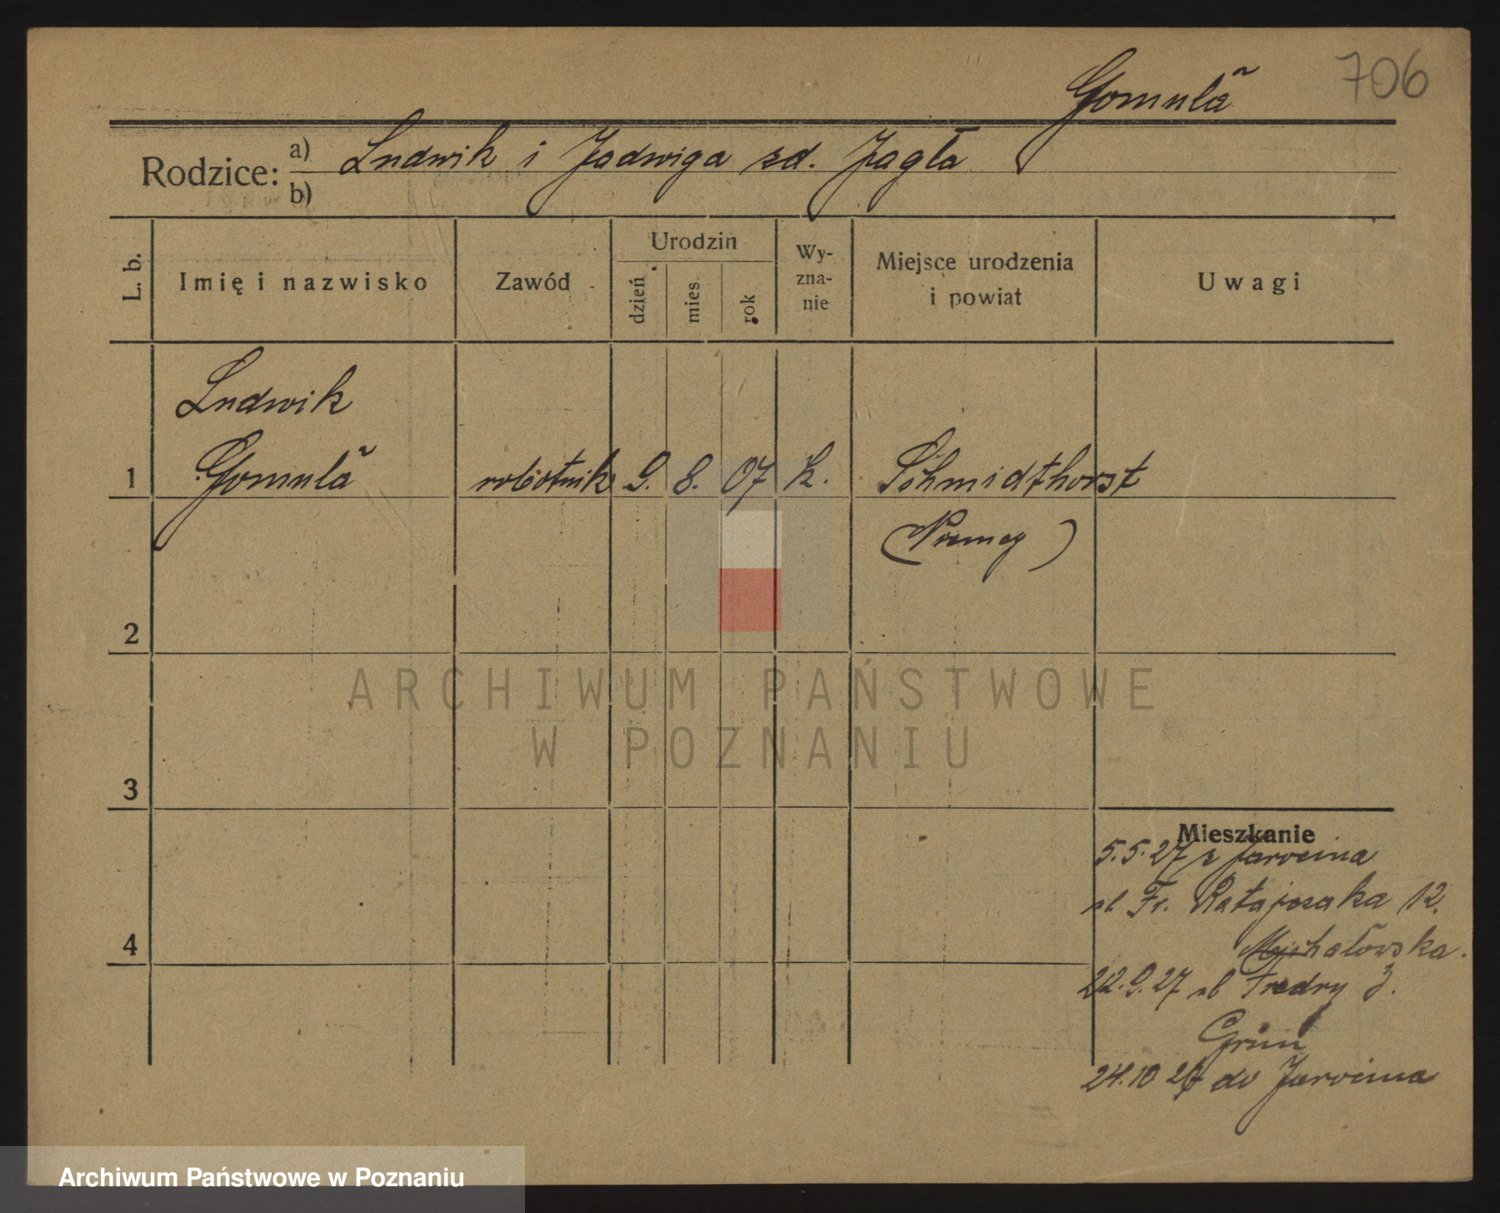 706
Gomuła
Rodzice: a) Ludwik i Jadwiga zd. Jagła
b)
L. b.
Imię i nazwisko
Zawód
Urodzin
dzień
mies.
rok
Wy-
zna-
nie
Miejsce urodzenia
i powiat
Uwagi
Ludwik
1 Gomuła robotnik 9. 8. 07 k. Schmidthorst
(Niemcy)
2
ARCHIWUM PAŃSTWOWE
W POZNANIU
3
Mieszkanie
5.5.27 z Jarocina
ul Fr. Ratajczaka 12.
Michałowska.
4
22.9.27 ul Fredry 3.
Grün
24.10 27 do Jarocina
Archiwum Państwowe w Poznaniu